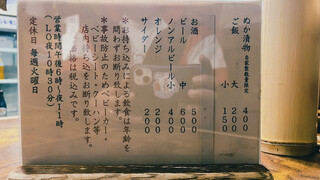 ぬか漬物 自家製数量限定 400
ご飯 大 200
小 150
お酒 500
ビール 中 600
ノンアルビール 小 400
オレンジ 200
サイダー 200
＊お持ち込みによる飲食は年齢を
問わずお断り致します。
＊事故防止のためベビーカー・
ベビーシート・クーハン等、
店内持ち込をお断り致します。
価格は税込みです。
営業時間午後6時〜夜11時
(LO夜10時30分)
定休日 毎週火曜日